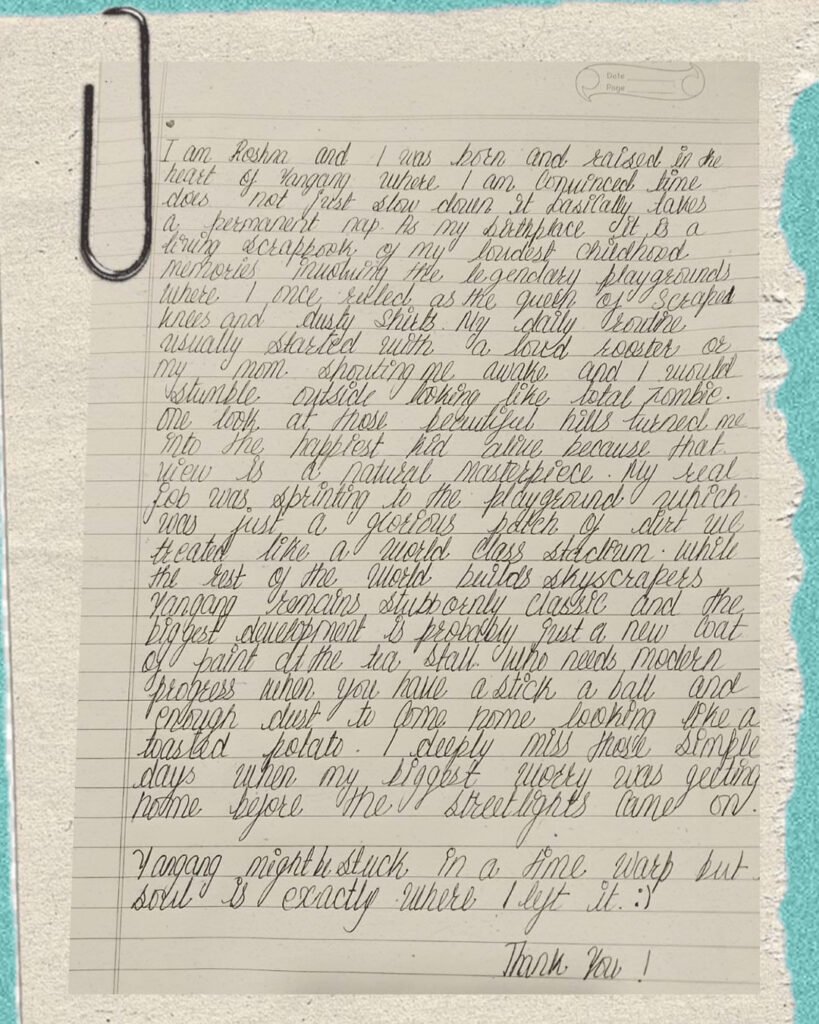 Date
Page
I am Roshni and I was born and raised in the
heart of Yangang where I am convinced time
does not just slow down it basically takes
a permanent nap. As my birthplace it is a
living scrapbook of my loudest childhood
memories involving the legendary playgrounds
where I once ruled as the queen of scraped
knees and dusty shirts. My daily routine
usually started with a loud rooster or
my mom shouting me awake and I would
stumble outside looking like total zombie.
one look at those beautiful hills turned me
into the happiest kid alive because that
view is a natural masterpiece. My real
job was sprinting to the playground which
was just a glorious patch of dirt we
treated like a world class stadium. while
the rest of the world builds skyscrapers
Yangang remains stubbornly classic and the
biggest development is probably just a new coat
of paint at the tea stall. who needs modern
progress when you have a stick a ball and
enough dust to come home looking like a
toasted potato. I deeply miss those simple
days when my biggest worry was getting
home before the streetlights came on.
Yangang might be stuck in a time warp but
soul is exactly where I left it. :)
Thank You !